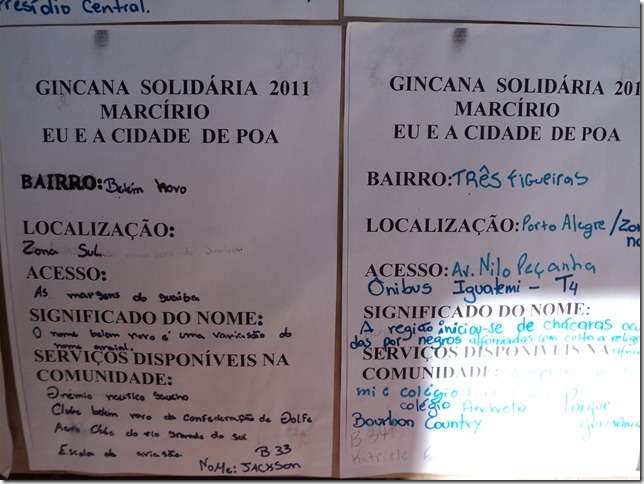 Presídio Central.
GINCANA SOLIDÁRIA 2011
MARCÍRIO
EU E A CIDADE DE POA
BAIRRO: Belém Novo
LOCALIZAÇÃO:
Zona Sul
ACESSO:
As margens do guaiba
SIGNIFICADO DO NOME:
O nome belem novo é uma variassão do
nome
SERVIÇOS DISPONÍVEIS NA
COMUNIDADE:
Grêmio nautico gaucho
Clube belem novo da Confederação de Golfe
Aero Clube do rio grande do sul
Escola de aviasão B 33
NOME: JACKSON
GINCANA SOLIDÁRIA 201
MARCÍRIO
EU E A CIDADE DE POA
BAIRRO: TRÊS figueiras
LOCALIZAÇÃO: Porto Alegre / Zon
no
ACESSO: Av. Nilo Peçanha
Ônibus Iguatemi - T4
SIGNIFICADO DO NOME:
A região iniciou-se de chácaras oc
das por negros alforriadas com culto a religi
SERVIÇOS DISPONÍVEIS NA
COMUNIDADE:
mi e colégio
colégio Anchieta Parque
Bourbon Country
B 34
Katriele